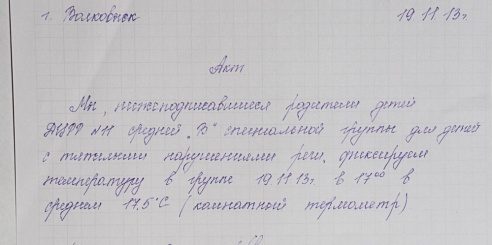 г. Волковыск 19.11.13г
Акт
Мы, нижеподписавшиеся родители детей
ДЦРР №11 средней „В" специальной группы для детей
с тяжелыми нарушениями речи, фиксируем
температуру в группе 19.11.13г. в 17⁰⁰ в
среднем 17.5°C (комнатный термометр)